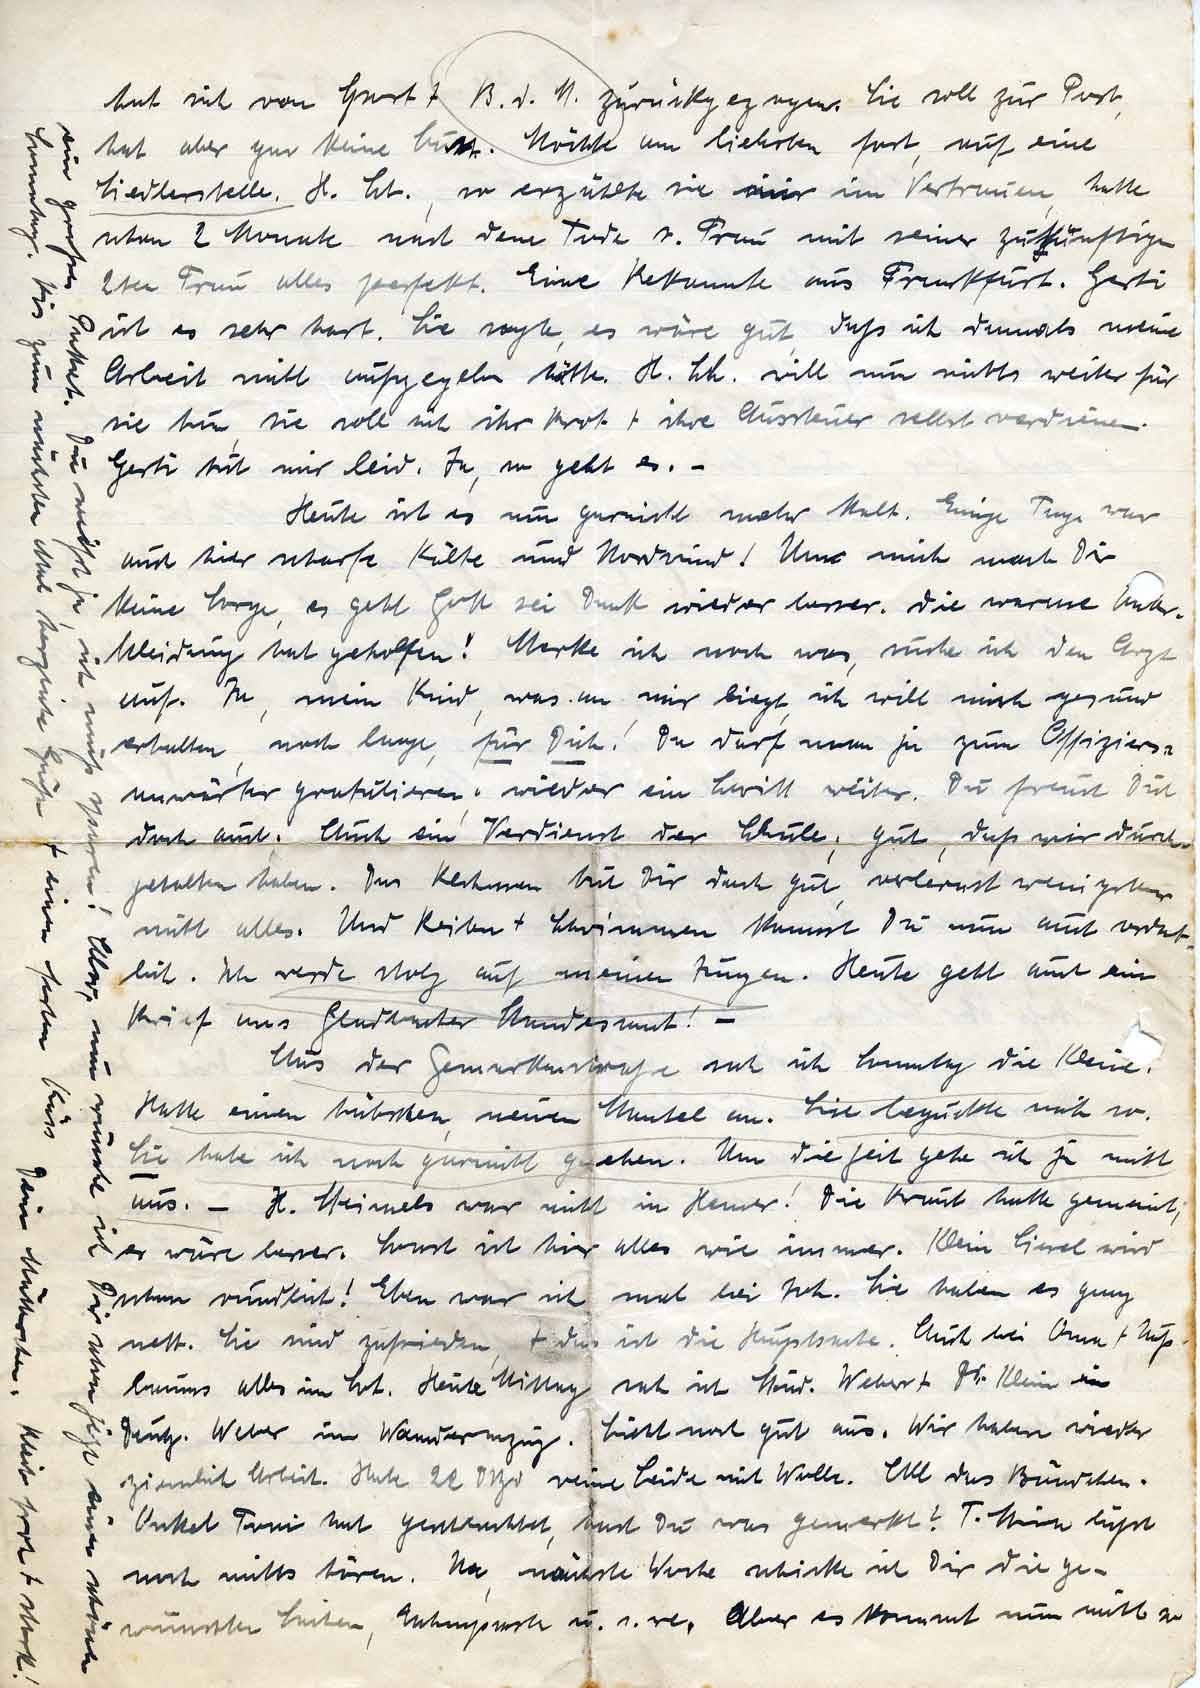 hat sich von Sport + B.d.M. zurückgezogen. Sie soll zur Post,
hat aber gar keine Lust. Möchte am liebsten fort, auf eine
Siedlerstelle. H. Sch., so erzählte sie mir im Vertrauen, hatte
schon 2 Monate nach dem Tode s. Frau mit seiner zukünftigen
2ten Frau alles perfekt. Eine Bekannte aus Frankfurt. Gerti
ist es sehr hart. Sie sagte, es wäre gut, daß ich damals meine
Arbeit nicht aufgegeben hätte. H. Sch. will nun nichts weiter für
sie tun, sie soll sich ihr Brot + ihre Aussteuer selbst verdienen.
Gerti tut mir leid. Ja, so geht es. –
Heute ist es nun garnicht mehr kalt. Einige Tage war
auch hier scharfe Kälte und Nordwind! Um mich mach Dir
keine Sorge, es geht Gott sei Dank wieder besser. Die warme Unter-
kleidung hat geholfen! Merke ich noch was, suche ich den Arzt
auf. Ja, mein Kind, was an mir liegt, ich will mich gesund
erhalten, noch lange, für Dich! Da darf man ja zum Offiziers-
anwärter gratulieren, wieder ein Schritt weiter. Du freust Dich
doch auch. Auch ein Verdienst der Schule, gut, daß wir durch-
gehalten haben. Das Rechnen tut Dir doch gut, verlernst wenigstens
nicht alles. Und Reiten + Schwimmen kannst Du nun auch ordent-
lich. Ich werde stolz auf meinen Jungen. Heute geht auch ein
Brief ans Gladbacher Standesamt! –
Aus der Gemarkenstraße sah ich Sonntag die Kleine.
Hatte einen hübschen, neuen Mantel an. Sie beguckte mich so.
Sie habe ich noch garnicht gesehen. Um die Zeit gehe ich ja nicht
aus. – H. Steimels war nicht in Hemer! Die Braut hatte gemeint,
es wäre besser. Sonst ist hier alles wie immer. Klein Liesel wird
schon rundlich! Eben war ich mal bei Joh. Sie haben es ganz
nett. Sie sind zufrieden, + das ist die Hauptsache. Auch bei Oma + Nuß-
baums alles im Lot. Heute Mittag sah ich Stud. Weber + Dr. Klein in
Deutz. Weber im Wanderanzug. Sieht noch gut aus. Wir haben wieder
ziemlich Arbeit. Habe 22 Dtzd reine Seide mit Wolle. All das Bündchen.
Onkel Toni hat geschlachtet, hast Du was gemerkt? T. Mina läßt
noch nichts hören. Na, nächste Woche schicke ich Dir die ge-
wünschten Seiten, Zahnpaste u.s.w. Aber es kommt nun nicht so
ein großes Paket. Du weißt ja, ich muß sparen! Also, nun wünsche ich Dir schon jetzt einen schönen
Sonntag. Bis zum nächsten Mal herzliche Grüße + einen festen Kuss Dein Mütterchen. Bleib froh + stark!